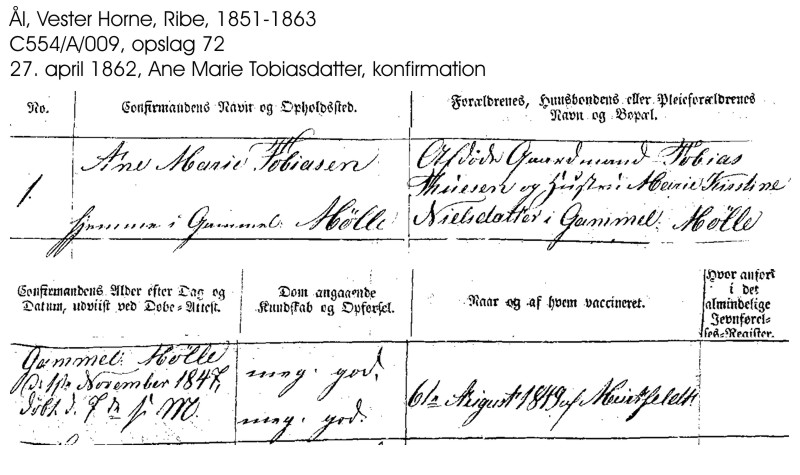 Ål, Vester Horne, Ribe, 1851-1863
C554/A/009, opslag 72
27. april 1862, Ane Marie Tobiasdatter, konfirmation
No.
Confirmandens Navn og Opholdssted.
Forældrenes, Huusbondens eller Pleieforældrenes
Navn og Bopæl.
1.
Ane Marie Tobiasen
hjemme i Gammel Mölle
Afdöde Gaardmand Tobias
Thuesen og Hustru Marie Kirstine
Nielsdatter i Gammel Mölle
Confirmandens Alder efter Dag og
Datum, udviist ved Døbe-Attest.
Dom angaaende
Kundskab og Opførsel.
Naar og af hvem vaccineret.
Hvor anført
i det
almindelige
Jevnførel-
ses-Register.
Gammel Mölle
d. 1ste November 1847,
döbt d. 7de s. M.
meg. god.
meg. god.
6te August 1849 af